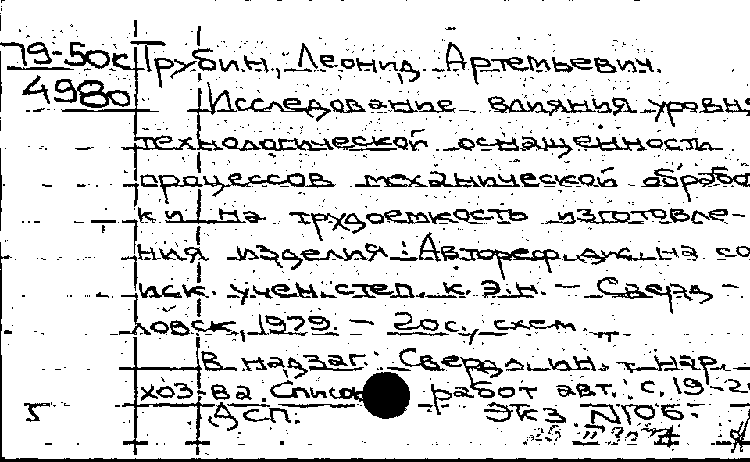 79-50к Трубин, Леонид Артемьевич.
4980 Исследование влияния уровня
технологической оснащенности
процессов механической обработ
ки на трудоемкость изготовле-
ния изделия: Автореф. дис. на со
иск. учен. степ. к. э. н. — Сверд-
ловск, 1979. — 20с., схем.
В надзаг: Свердл. ин. т нар.
хоз-ва. Список работ авт.: с. 19-2
5 ДСП. Экз. N106.